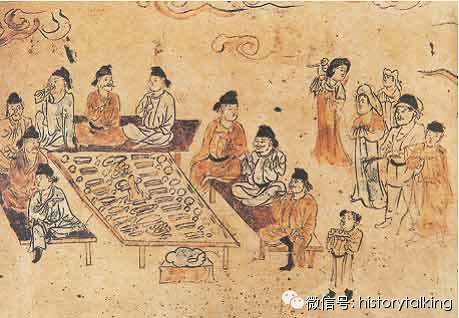 微信号: historytalking